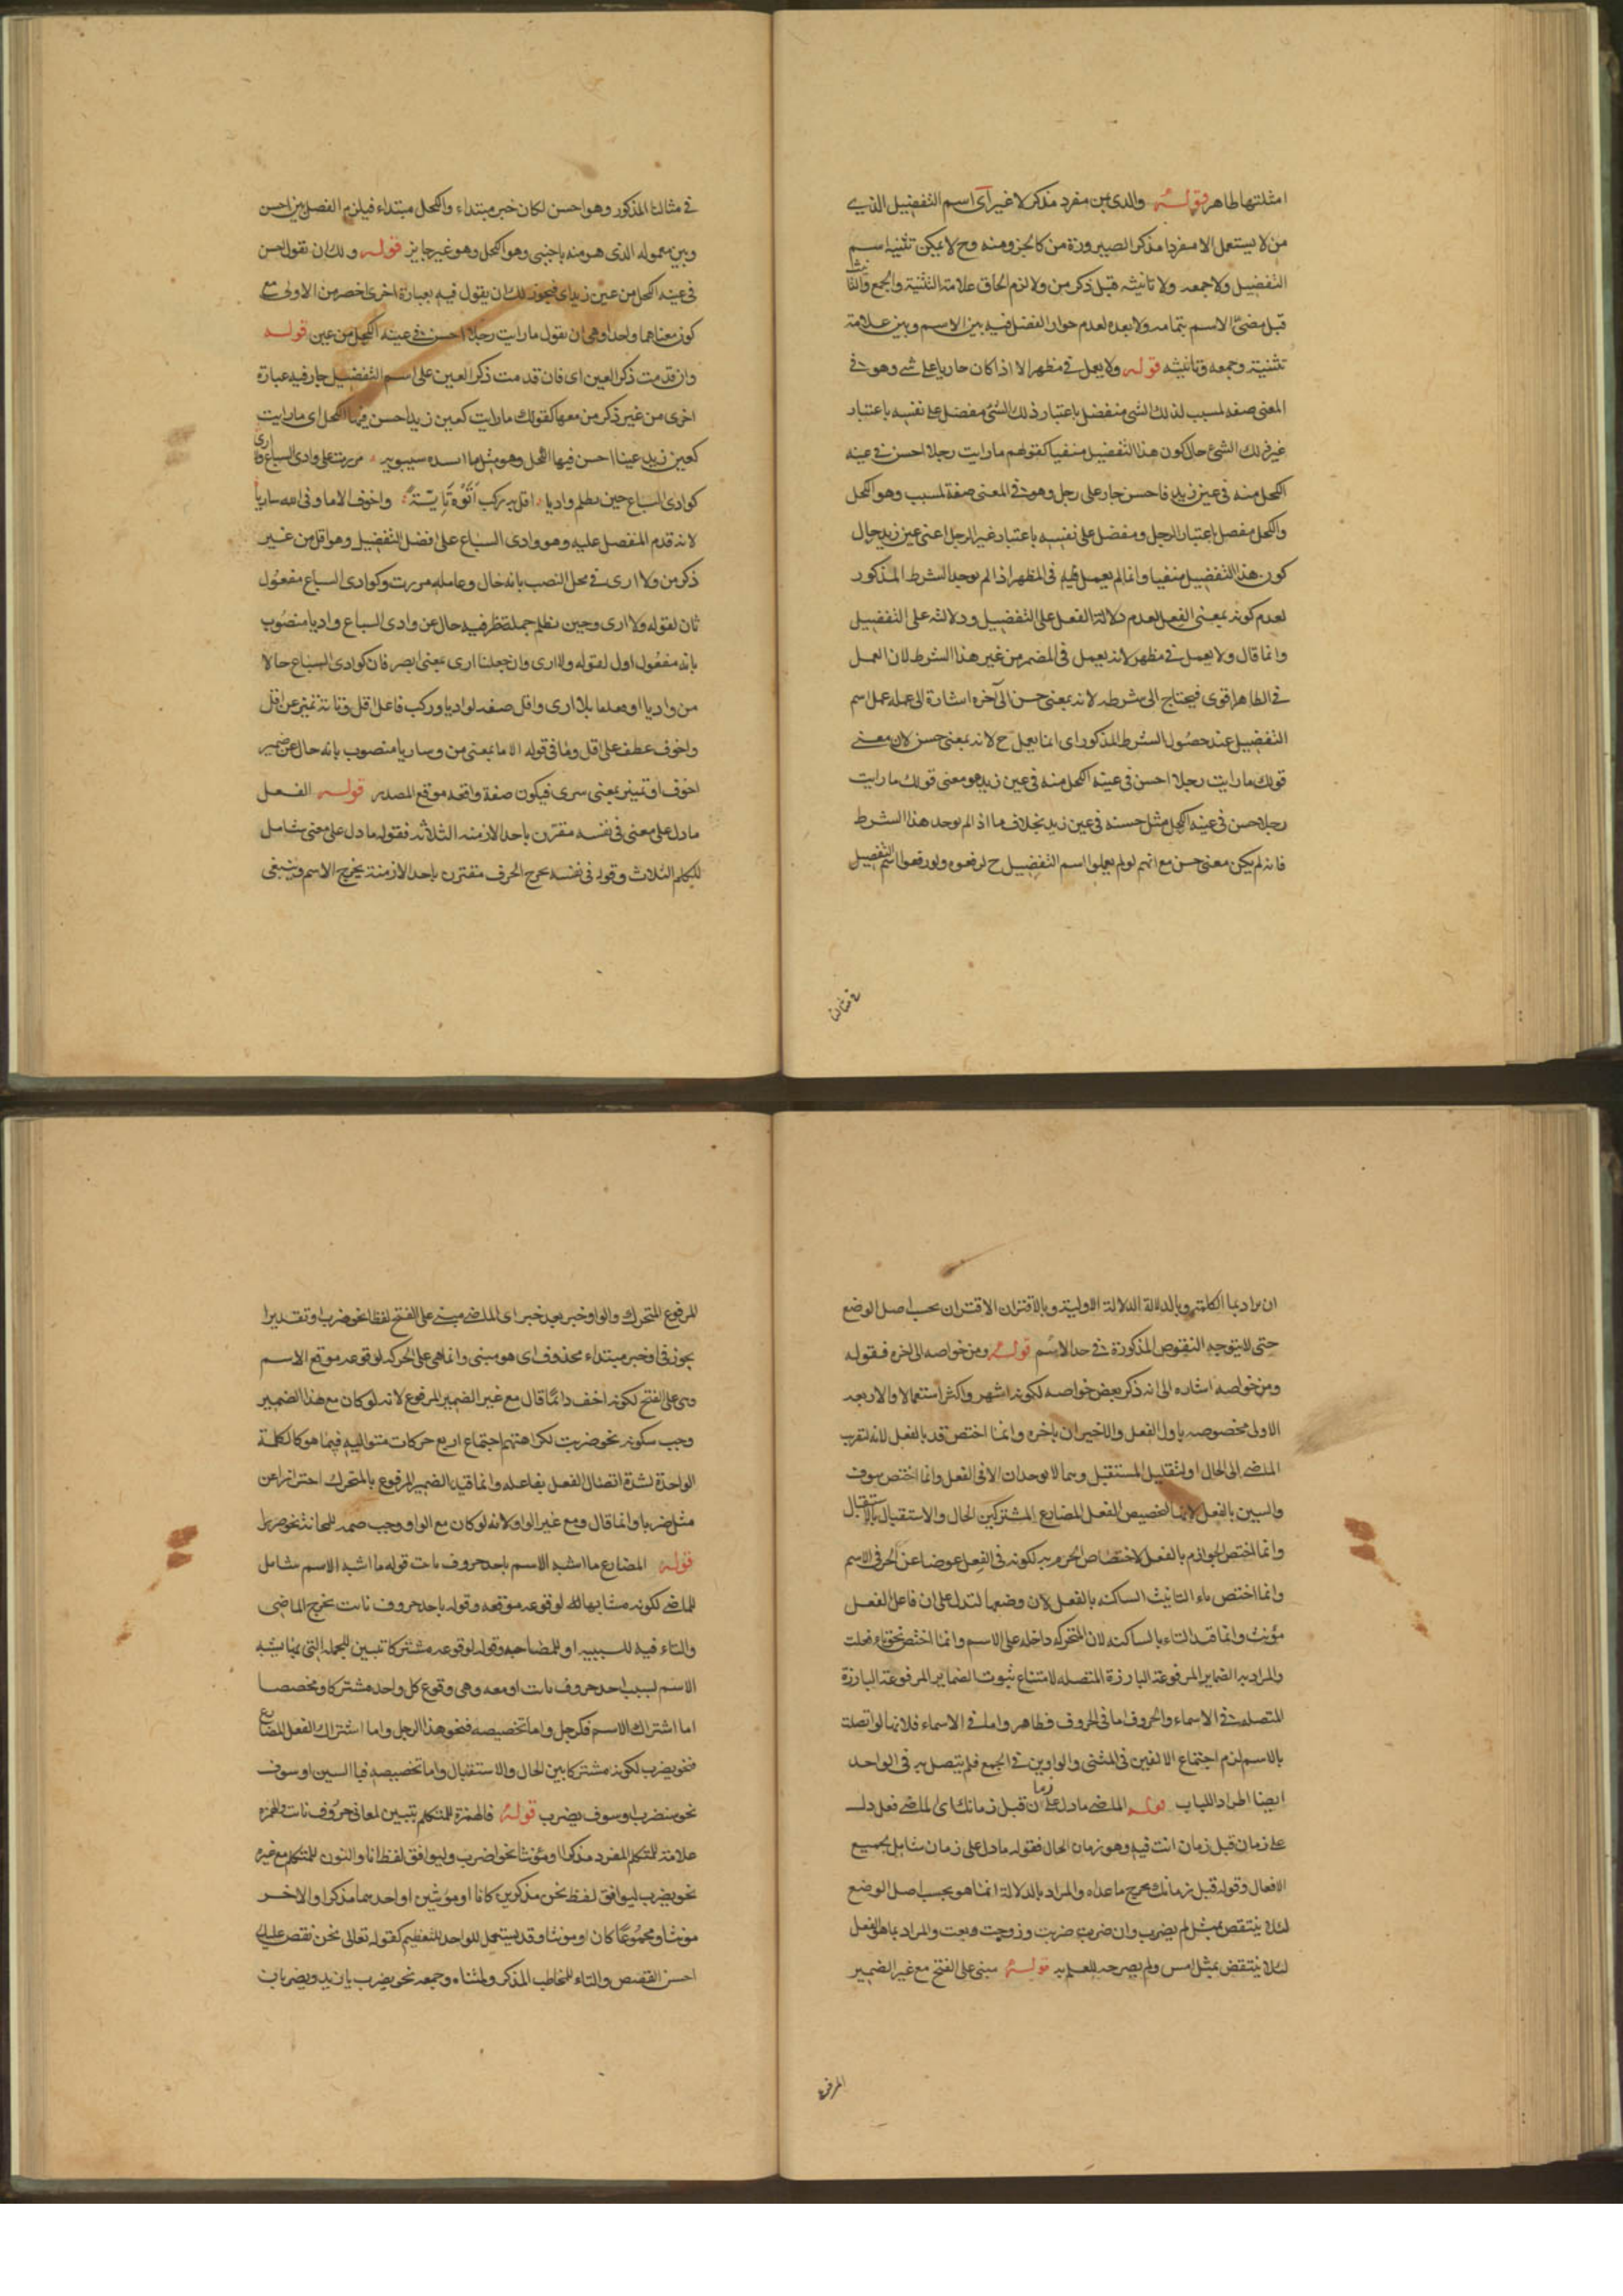 امثلتها ظاهر قوله والذى بمن مفرد مذكر لا غير اى اسم التفضيل الذى
من لا يستعمل الا مفردا مذكرا لصيرورة من كالجزو منه وح لا يمكن تثنيه اسم
التفضيل ولا جمعه ولا تانيثه قبل ذكر من ولا لزم الحاق علامة التثنية والجمع والتانيث
قبل مضى الاسم بتمامه ولا بعده لعدم جواز الفصل فيه بين الاسم وبين علامة
تثنيته وجمعه وتانيثه قوله ولا يعمل فى مظهر الا اذا كان جاريا على شى وهو فى
المعنى صفه لمسبب لذلك الشى مفضل باعتبار ذلك الشى مفضل على نفسه باعتبار
غير ذلك الشئ حال كون هذا التفضيل منفيا كقولهم ما رايت رجلا احسن فى عينه
الكحل منه فى عين زيد فاحسن جار على رجل وهو فى المعنى صفة لمسبب وهو الكحل
والكحل مفضل باعتبار الرجل ومفضل على نفسه باعتبار غير الرجل اعنى عين زيد حال
كون هذا التفضيل منفيا وانما لم يعمل فيه فى المظهر اذا لم يوجد الشرط المذكور
لعدم كونه بمعنى الفعل لعدم دلالة الفعل على التفضيل ودلالته على التفضيل
وانما قال ولا يعمل فى مظهر لانه يعمل فى المضمر من غير هذا الشرط لان العمل
فى الظاهر اقوى فيحتاج الى شرطه لانه بمعنى حسن الى آخره اشارة الى عمله عمل اسم
التفضيل عند حصول الشرط المذكور اى انما يعمل ح لانه بمعنى حسن لان معنى
قولك ما رايت رجلا احسن فى عينه الكحل منه فى عين زيد هو معنى قولك ما رايت
رجلا حسن فى عينه الكحل مثل حسنه فى عين زيد بخلاف ما اذا لم يوجد هذا الشرط
فانه لم يكن معنى حسن مع انهم لو لم يعملوا اسم التفضيل ح لرفعوه ولو رفعوا اسم التفضيل
فى مثالنا
فى مثالنا المذكور وهو احسن لكان خبر مبتداء والكحل مبتداء فيلزم الفصل بين احسن
وبين معموله الذى هو منه باجنبى وهو الكحل وهو غير جايز قوله ولك ان تقول احسن
فى عينه الكحل من عين زيد اى فيجوز لك ان يقول فيه بعبارة اخرى اخصر من الاولى مع
كون معناهما واحدا وهى ان تقول ما رايت رجلا احسن فى عينه الكحل من عين قوله
وان قدمت ذكر العين اى فان قدمت ذكر العين على اسم التفضيل جاز فيه عبارة
اخرى من غير ذكر من معها كقولك ما رايت كعين زيد احسن فيها الكحل اى ما رايت
كعين زيد عينا احسن فيها الكحل وهو مثل ما انشده سيبويه مررت على وادى السباع ولا ارى
كوادى السباع حين يظلم واديا اقل به ركب اتوه تايّة واخوف الا ما وقى الله ساريا
لانه قدم المفضل عليه وهو وادى السباع على افضل التفضيل وهو اقل من غير
ذكر من ولا ارى فى محل النصب بانه حال وعامله مررت وكوادى السباع مفعول
ثان لقوله ولا ارى وحين يظلم جملة ظرفيه حال عن وادى السباع واديا منصوب
بانه مفعول اول لقوله ولا ارى وان جعلنا ارى بمعنى ابصر فان كوادى السباع حالا
من واديا او معلما بلا ارى واقل صفه لواديا وركب فاعل اقل وتاية تميز عن اقل
واخوف عطف على اقل وما فى قوله الا ما بمعنى من وساريا منصوب بانه حال عن ضمير
اخوف او تميز بمعنى سرى فيكون صفة واقعه موقع المصدر قوله الفعل
ما دل على معنى فى نفسه مقترن باحد الازمنه الثلاثه فقوله ما دل على معنى شامل
للكلم الثلاث وقوله فى نفسه يخرج الحرف مقترن باحد الازمنة يخرج الاسم وينبغى
ان يراد بما الكلمة وبالدلالة الدلالة الاولية وبالاقتران الاقتران بحسب اصل الوضع
حتى لا يتوجه النقوض المذكورة فى حد الاسم قوله ومن خواصه الى اخره فقوله
ومن خواصه اشاره الى انه ذكر بعض خواصه لكونه اشهر واكثر استعمالا والاربعه
الاولى مخصوصه باول الفعل والاخيران باخره وانما اختص قد بالفعل لانه لتقريب
الماضى الى الحال او لتقليل المستقبل وهما لا يوجدان الا فى الفعل وانما اختص سوف
والسين بالفعل لانهما لتخصيص الفعل المضارع المشترك بين الحال والاستقبال بالاستقبال
وانما اختص الجوازم بالفعل لاختصاص الجزم به لكونه فى الفعل عوضا عن الجر فى الاسم
وانما اختص تاء التانيث الساكنه بالفعل لان وضعها لتدل على ان فاعل الفعل
مؤنث وانما قيد التاء بالساكنه لان المتحركه داخله على الاسم وانما اختص نحو تاء فعلت
والمراد به الضماير المرفوعة البارزة المتصله لامتناع ثبوت الضماير المرفوعة البارزة
المتصله فى الاسماء والحروف اما فى الحروف فظاهر واما فى الاسماء فلانها لو اتصلت
بالاسم لزم اجتماع الالفين فى المثنى والواوين فى الجمع فلم يتصل به فى الواحد
ايضا اطرادا للباب قوله الماضى ما دل على زمان قبل زمانك اى الماضى فعل دل
على زمان قبل زمان انت فيه وهو زمان الحال فقوله ما دل على زمان شامل لجميع
الافعال وقوله قبل زمانك يخرج ما عداه والمراد بالدلالة انما هو بحسب اصل الوضع
لئلا ينتقض بمثل لم يضرب وان ضربت ضربت وزوجت وبعت والمراد بما هو الفعل
لئلا ينتقض بمثل امس ولم يصرح به للعلم به قوله مبنى على الفتح مع غير الضمير
المرفوع
المرفوع المتحرك والواو خبر بعد خبر اى الماضى مبنى على الفتح لفظا نحو ضرب او تقديرا
يجوز فى او خبر مبتداء محذوف اى هو مبنى وانما هى على الحركه لوقوعه موقع الاسم
وهى على الفتح لكونه اخف وانما قال مع غير الضمير المرفوع لانه لو كان مع هذا الضمير
وجب سكونه نحو ضربت لكراهتهم اجتماع اربع حركات متواليه فيما هو كالكلمة
الواحدة لشدة اتصال الفعل بفاعله وانما قيد الضمير المرفوع بالمتحرك احترازا عن
مثل ضربا وانما قال ومع غير الواو لانه لو كان مع الواو وجب ضمه للمجانسة نحو ضربوا
قوله المضارع ما اشبه الاسم باحد حروف نايت قوله ما اشبه الاسم شامل
للماضى لكونه مشابها له لوقوعه موقعه وقوله باحد حروف نايت يخرج الماضى
والتاء فيه للسببيه او للمصاحبه وقوله لوقوعه مشتركا تبيين للجمله التى بها يشبه
الاسم لسبب احد حروف نايت او معه وهى وقوع كل واحد مشتركا ومخصصا
اما اشتراك الاسم فكرجل واما تخصيصه فنحو هذا الرجل واما اشتراك الفعل المضارع
فنحو يضرب لكونه مشتركا بين الحال والاستقبال واما تخصيصه فبالسين او سوف
نحو سيضرب او سوف يضرب قوله فالهمزة للمتكلم تبيين لمعانى حروف نايت والهمزه
علامة للمتكلم المفرد مذكرا او مؤنثا نحو اضرب وليوافق لفظ انا والنون للمتكلم مع غيره
نحو نضرب ليوافق لفظ نحن مذكرين كانا او مؤنثين او احدهما مذكرا والاخر
مونثا ومجموعا كان او مونثا وقد يستعمل للواحد للتعظيم كقوله تعالى نحن نقص عليك
احسن القصص والتاء للمخاطب المذكر ولمثناه وجمعه نحو يضرب يا زيد ويضربان